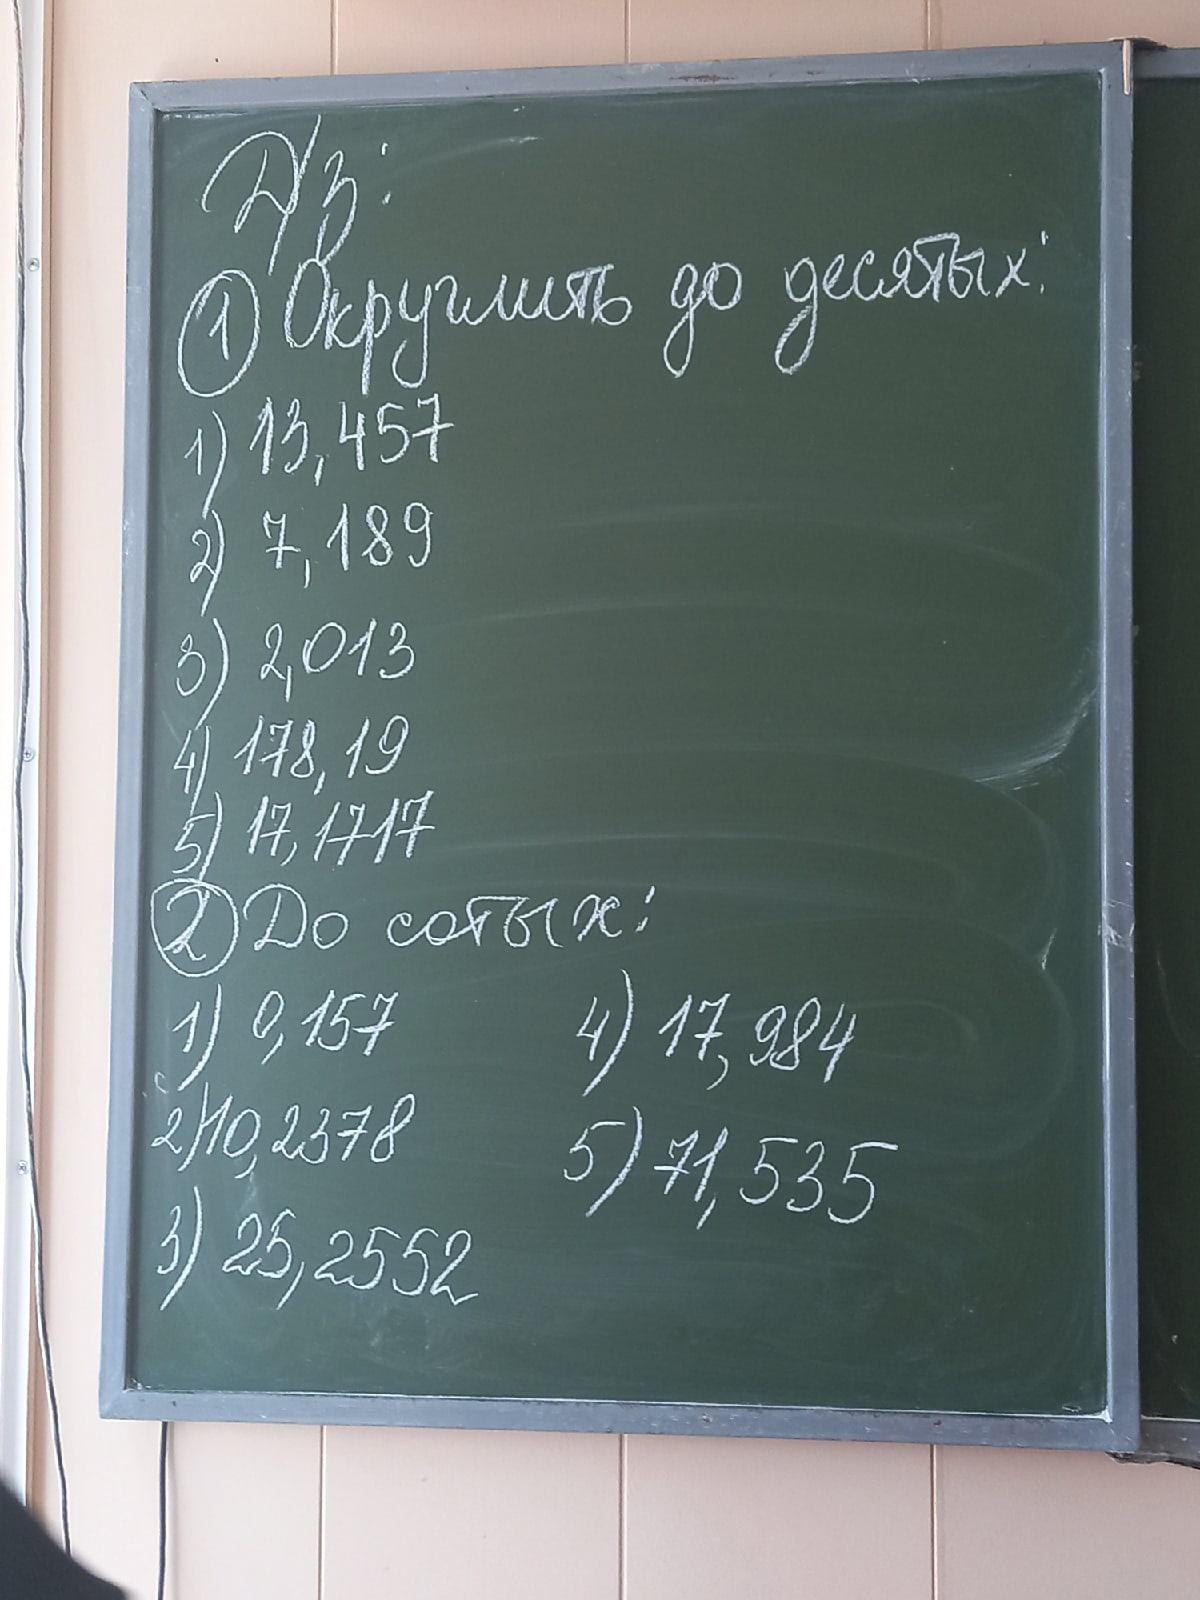 Д/з:
① Округлить до десятых:
1) 13,457
2) 7,189
3) 2,013
4) 178,19
5) 17,1717
② До сотых:
1) 0,157
2) 10,2378
3) 25,2552
4) 17,984
5) 71,535